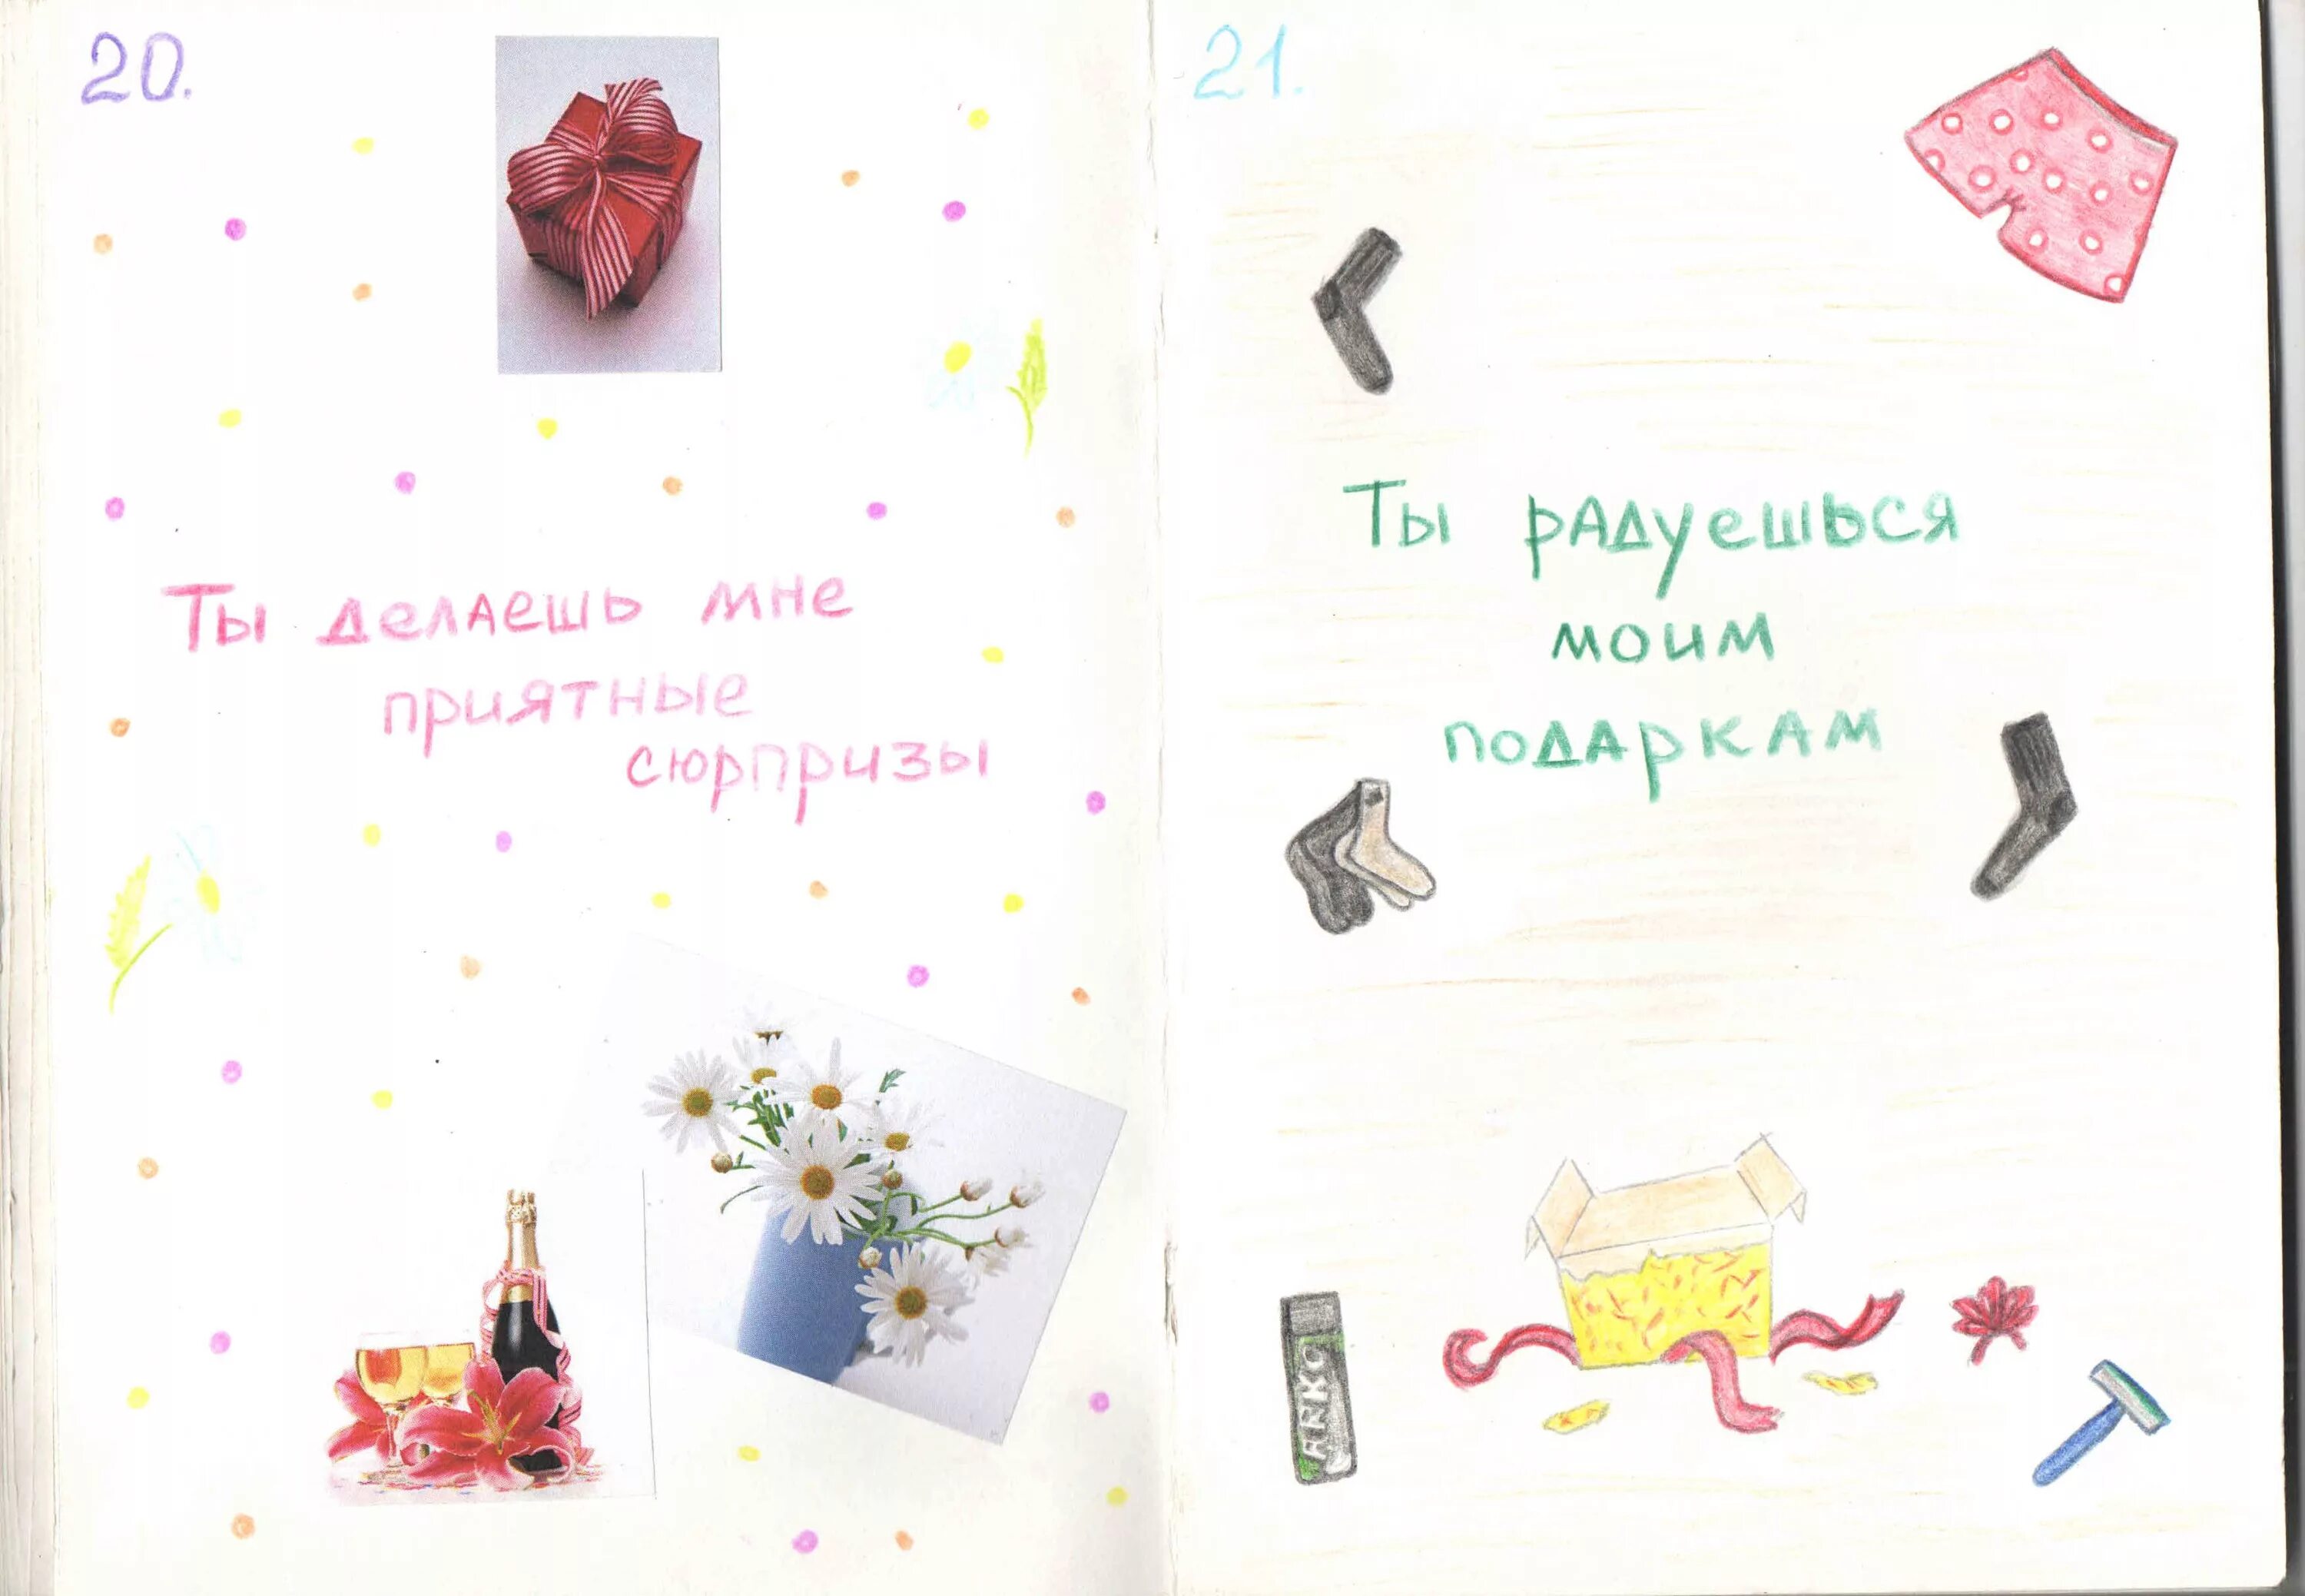 20.
Ты делаешь мне
приятные
сюрпризы
21.
Ты радуешься
моим
подаркам
ARKO